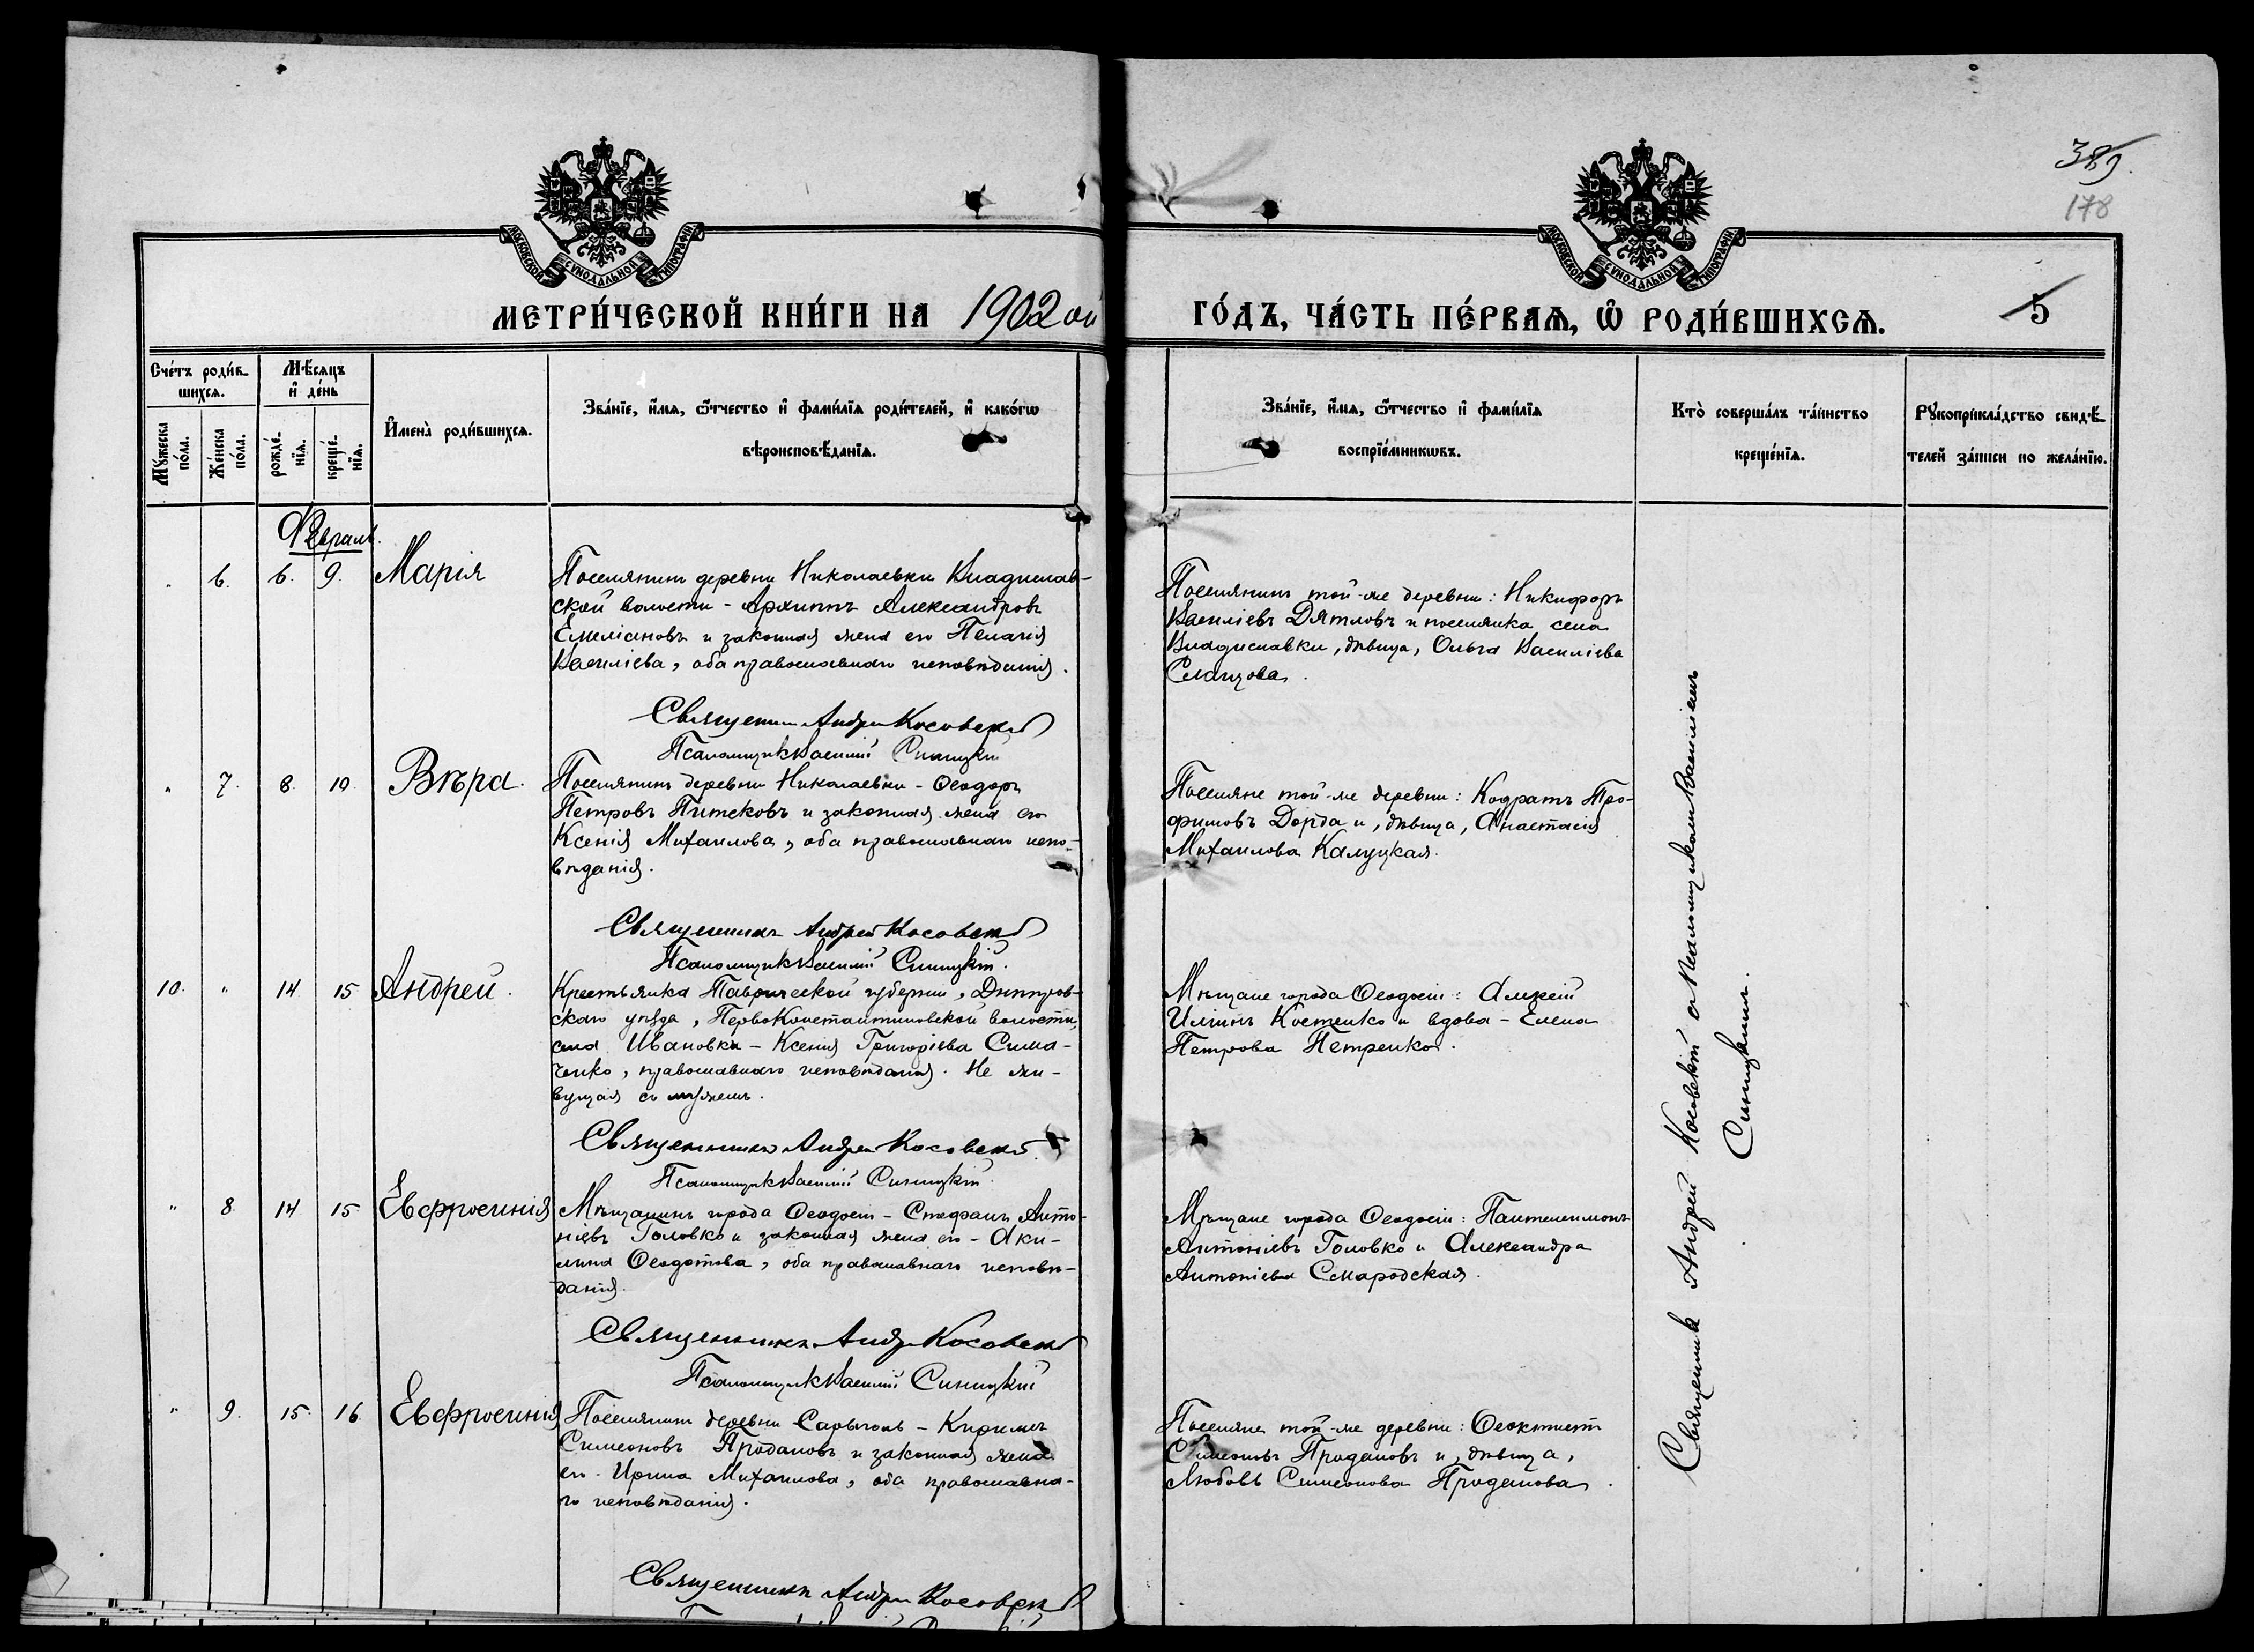 МОСКОВСКОЙ СѴНОДАЛЬНОЙ ТИПОГРАФІИ
МОСКОВСКОЙ СѴНОДАЛЬНОЙ ТИПОГРАФІИ
389.
178
МЕТРИ́ЧЕСКОЙ КНИ́ГИ НА 1902 ой
ГО́ДЪ, ЧА́СТЬ ПЕ́РВАѦ, Ѡ҆ РОДИ́ВШИХСѦ.
5
Сче́тъ роди́в-
шихсѧ.
Мѣ́сѧцъ
и҆ де́нь
Му́жеска
по́ла.
Же́нска
по́ла.
рожде́-
нїѧ.
креще́-
нїѧ.
И҆мена̀ роди́вшихсѧ.
Зва́нїе, и҆́мѧ, ѻ҆́тчество и҆ фами́лїѧ роди́телей, и҆ како́гѡ
вѣроисповѣ́данїѧ.
Зва́нїе, и҆́мѧ, ѻ҆́тчество и҆ фами́лїѧ
воспрїе́мникѡвъ.
Кто̀ соверша́лъ та́инство
креще́нїѧ.
Рꙋкоприкла́дство свидѣ́-
телей за́писи по жела́нїю.
Февраль.
" 6. 6. 9. Марія
Поселянинъ деревни Николаевки Владислав-
ской волости - Архиппъ Александровъ
Емеліановъ и законная жена его Пелагія
Василіева, оба православнаго исповѣданія.
Священникъ Андрей Косовскій
Псаломщикъ Василій Синицкій
Поселянинъ той-же деревни: Никифоръ
Василіевъ Дятловъ и поселянка села
Владиславки, дѣвица, Ольга Василіева
" 7. 8. 10. Вѣра.
Поселянинъ деревни Николаевки - Ѳеодоръ
Петровъ Питековъ и законная жена его
Ксенія Михаилова, оба православнаго испо-
вѣданія.
Священникъ Андрей Косовскій
Псаломщикъ Василій Синицкій.
Поселяне той-же деревни: Кодратъ Тро-
фимовъ Дорда и, дѣвица, Анастасія
Михаилова Калуцкая.
10. " 14 15 Андрей.
Крестьянка Таврической губерніи, Днѣпров-
скаго уѣзда, ПервоКонстантиновской волости,
села Ивановки - Ксенія Григоріева Сима-
ченко, православнаго исповѣданія. Не жи-
вущая съ мужемъ.
Священникъ Андрей Косовскій.
Псаломщикъ Василій Синицкій
Мѣщане города Ѳеодосіи: Алексій
Иліинъ Костенко и вдова - Елена
Петрова Петренко.
" 8 14 15 Евфросинія
Мѣщанинъ города Ѳеодосіи - Стефанъ Анто-
ніевъ Головко и законная жена его - Аки-
лина Ѳеодотова, оба православнаго исповѣ-
данія.
Священникъ Андрей Косовскій
Псаломщикъ Василій Синицкій
Мѣщане города Ѳеодосіи: Пантелеимонъ
Антоніевъ Головко и Александра
Антоніева Смародская.
" 9. 15. 16. Евфросинія
Поселянинъ деревни Сарыголь - Кириллъ
Симеоновъ Продановъ и законная жена
его - Ирина Михаилова, оба православна-
го исповѣданія.
Священникъ Андрей Косовскій
Поселяне той-же деревни: Ѳеоктистъ
Симеоновъ Продановъ и, дѣвица,
Любовь Симеонова Проданова.
Священникъ Андрей Косовскій съ Псаломщикомъ Василіемъ
Синицкимъ.